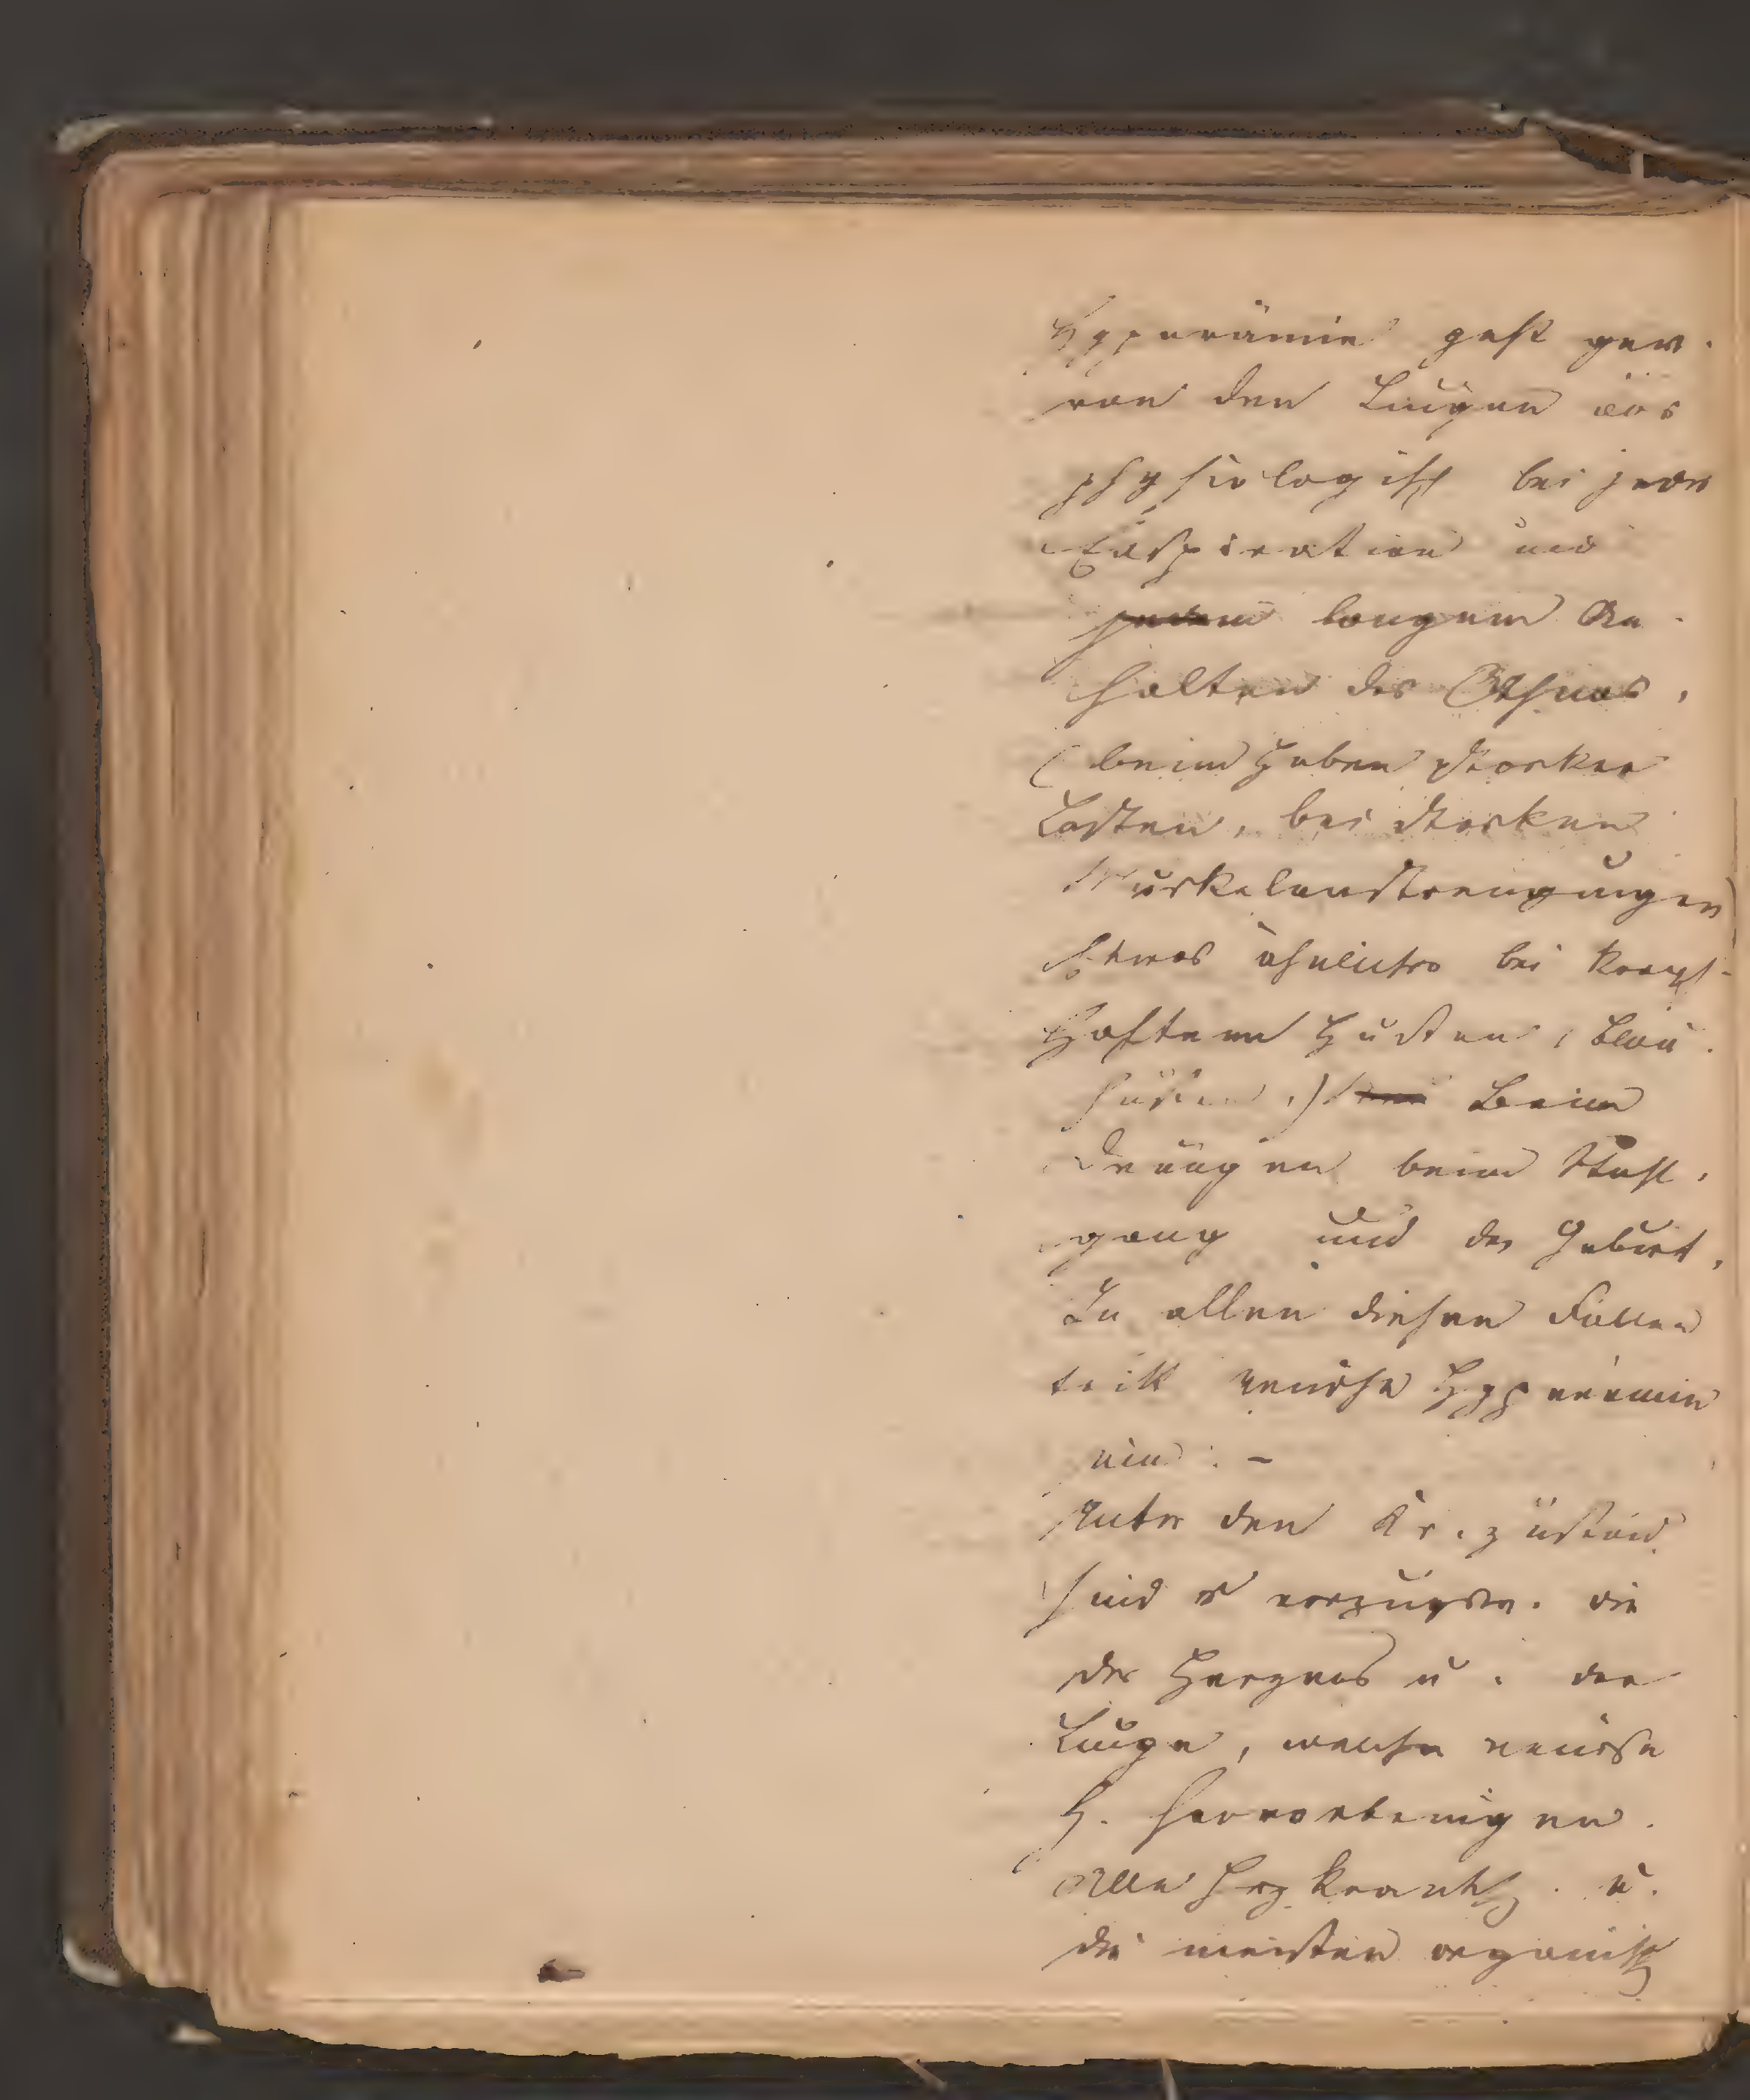 Hyperämie geht gew.
von den Lungen aus
physiologisch bei jeder
Exspiration und
jedem langem An-
halten des Athmes,
(beim Heben starker
Lasten, bei starken
Muskelanstrengungen)
Etwas ähnliches bei krampf-
haftem Husten, (Blau-
husten.) Beim
Drängen beim Stuhl-
gang und der Geburt.
In allen diesen Fällen
tritt venöse Hyperämie
ein. -
Unter den Kr. zuständ.
sind es vorzugsw. die
des Herzens u. der
Lunge, welche venöse
H. hervorbringen.
Alle Herzkrankh. u.
die meisten organisch